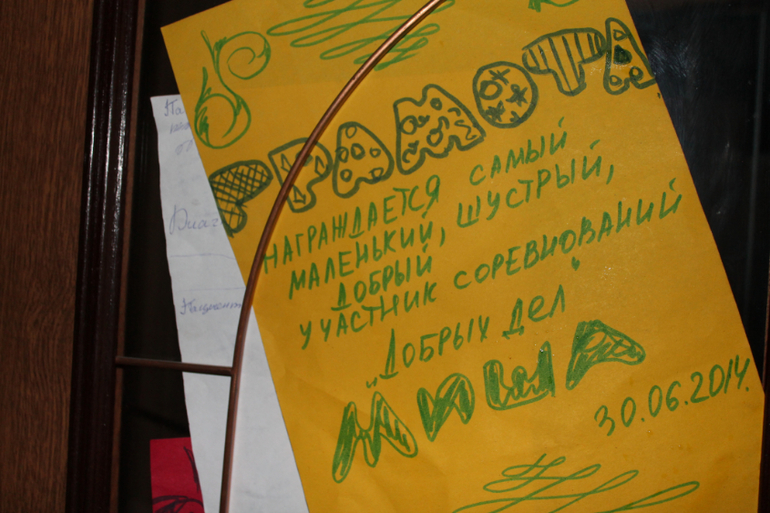 ГРАМОТА
НАГРАЖДАЕТСЯ САМЫЙ
МАЛЕНЬКИЙ, ШУСТРЫЙ,
ДОБРЫЙ
УЧАСТНИК СОРЕВНОВАНИЙ
„ДОБРЫХ ДЕЛ"
МИША
30.06.2014.